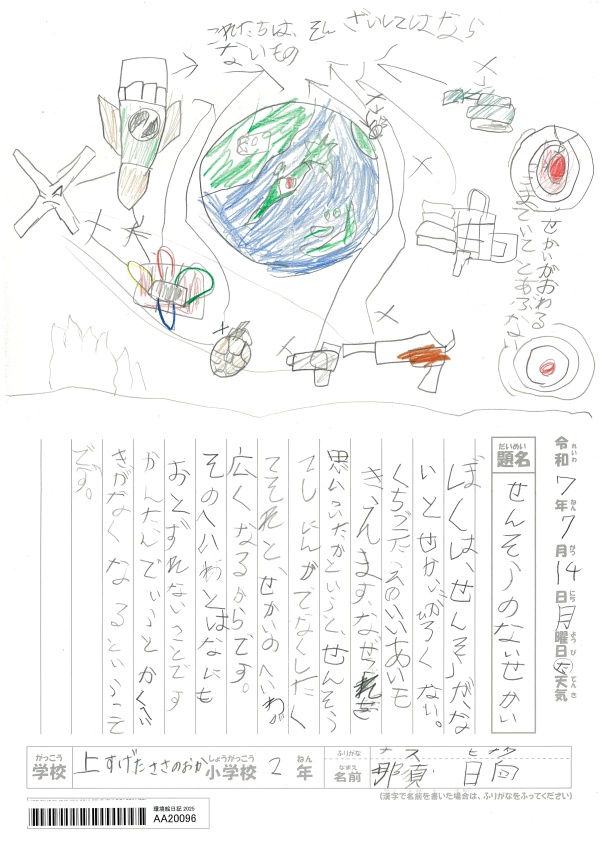 これたちは、そんざいしてはなら
ないもの
せかいがおわる
とあぶない
令和7年7月14日月曜日天気
れいわ ねん がつ にち ようび てんき
だいめい
題名 せんそうのないせかい
ぼくは、せんそうが、な
いとせかいが ろくない。
のいいあいも
きえます、なぜ
思いついたかというと、せんそう
でしにんがでなくしたく
てそれと、せかいのへいわが
広くなるからです。
そのへいわとはなにも
おとずれないことです
かんたんでいうとかくへい
きがなくなるというこそ
です。
がっこう しょうがっこう ねん
学校 上すげたささのおか 小学校 2 年
ふりがな ナス
なまえ
名前 那須 日向
(漢字で名前を書いた場合は、ふりがなをふってください)
環境絵日記 2025
AA20096